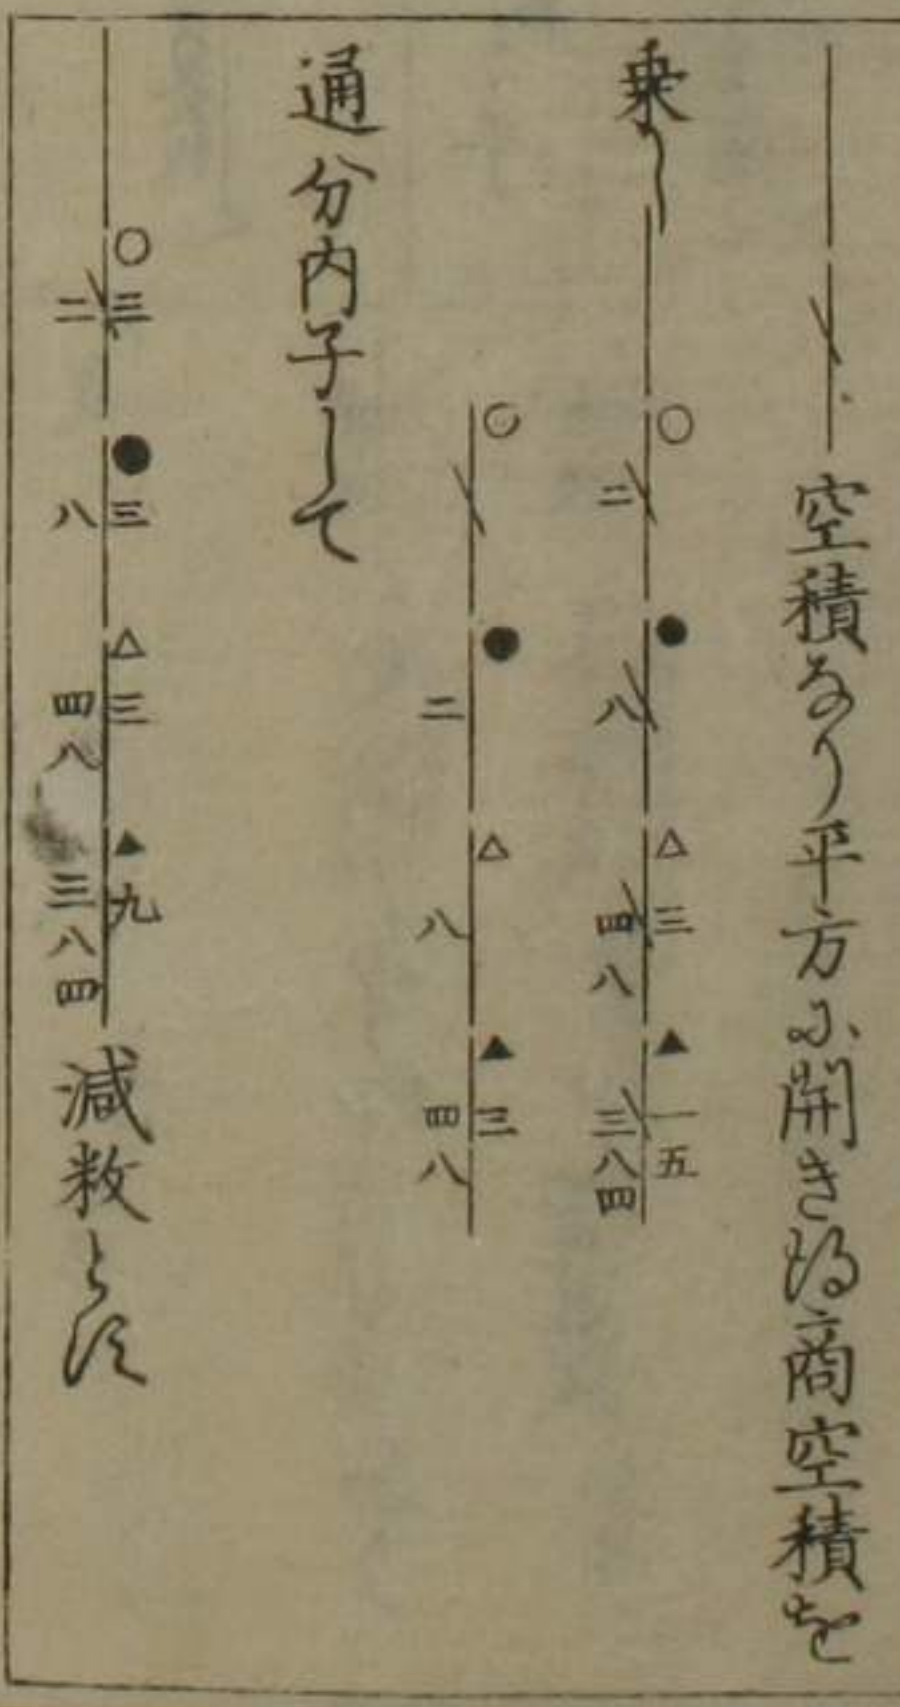 空積なり平方に開き得商空積を
乗し
○ 二
● 八
△ 三 四八
▲ 一五 三八四
○
● 二
△ 八
▲ 三 四八
通分内子して
○ 三 二
● 三 八
△ 三 四八
▲ 九 三八四
減数とす